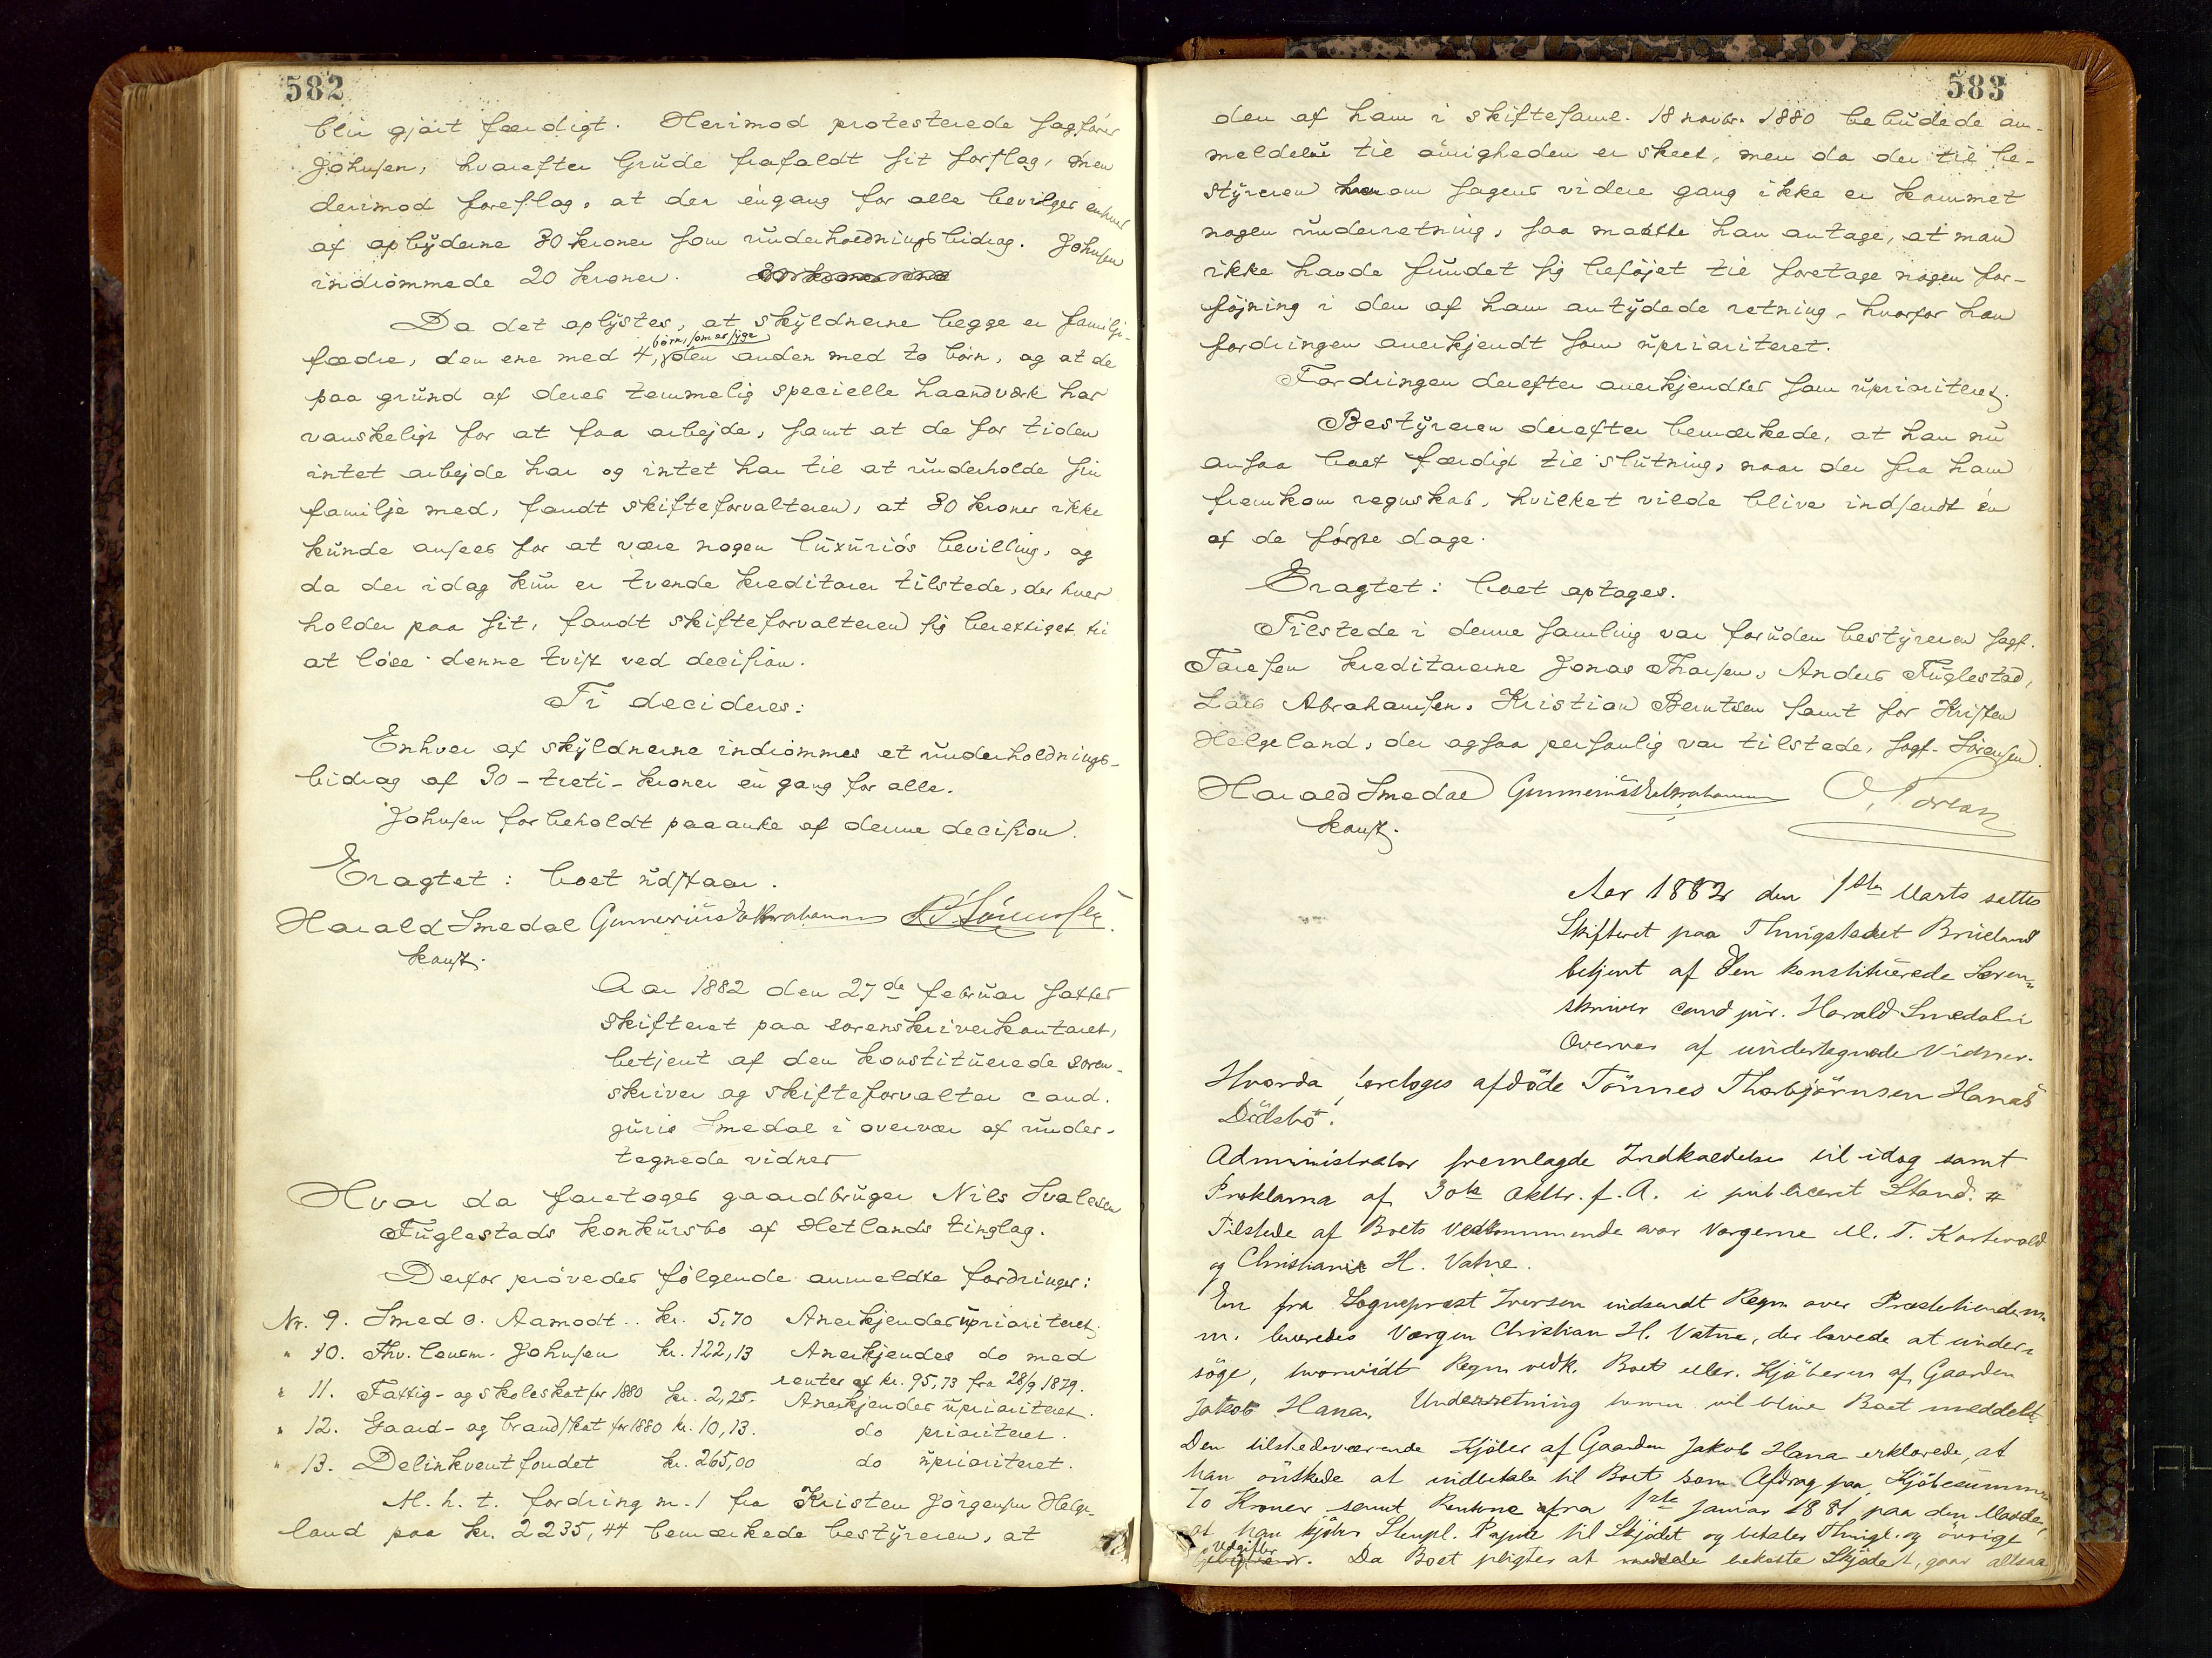 582
blir gjort færdigt. Herimod protesterede sagfører
Johnsen, hvorefter Grude frafaldt sit forslag, men
derimod foreslog, at der engang for alle bevilges enhver
af opbyderne 30 kroner som underholdningsbidrag. Johnsen
indrømmede 20 kroner.
Da det oplystes, at skyldnerne begge er familje-
fædre, den ene med 4 børn, som er syge, den anden med to børn, og at de
paa grund af deres temmelig specielle haandværk har
vanskeligt for at faa arbejde, samt at de for tiden
intet arbejde har og intet har til at underholde sin
familje med, fandt skifteforvalteren, at 30 kroner ikke
kunde ansees for at være nogen luxuriøs bevilling, og
da der idag kun er tvende kreditorer tilstede, der hver
holder paa sit, fandt skifteforvalteren sig berettiget til
at løse denne tvist ved decision.
Ti decideres:
Enhver af skyldnerne indrømmes et underholdnings-
bidrag af 30 - treti - kroner en gang for alle.
Johnsen forbeholdt paaanke af denne decision.
Eragtet: boet udstaar.
Harald Smedal Gunnerius Abrahamsen
konst.
Aar 1882 den 27de februar sattes
skifteret paa sorenskriverkontoret,
betjent af den konstituerede soren-
skriver og skifteforvalter cand.
juris Smedal i overvær af under-
tegnede vidner
Hvor da foretoges gaardbruger Nils Svalesen
Fuglestads konkursbo af Hetlands tinglag.
Derfor prøvedes følgende anmeldte fordringer:
Nr. 9. Smed O. Aamodt.. kr. 5,70 Anerkjendes uprioriteret.
" 10. Fhv. lensm. Johnsen kr. 122,13 Anerkjendes do med
renter af kr. 95,73 fra 28/9 1879.
" 11. Fattig- og skoleskat for 1880 kr. 2,25. Anerkjendes uprioriteret.
" 12. Gaard- og brandskat for 1880 kr. 10,13. do prioriteret.
" 13. Delinkventfondet kr. 265,00 do uprioriteret.
M. h. t. fordring nr. 1 fra Kristen Jørgensen Helge-
land paa kr. 2235,44 bemærkede bestyreren, at
583
den af ham i skiftesaml. 18 novbr. 1880 bebudede an-
meldelse til øvrigheden er skeet, men da der til be-
styreren om sagens videre gang ikke er kommet
nogen underretning, saa maatte han antage, at man
ikke havde fundet sig beføjet til foretage nogen for-
føjning i den af ham antydede retning, hvorfor han
fordringen anerkjendt som uprioriteret.
Fordringen derefter anerkjendtes som uprioriteret.
Bestyreren derefter bemærkede, at han nu
ansaa boet færdigt til slutning, naar der fra ham
fremkom regnskab, hvilket vilde blive indsendt en
af de første dage.
Eragtet: boet optages.
Tilstede i denne samling var foruden bestyreren sagf.
Taresen kreditorerne Jonas Thorsen, Anders Fuglestad,
Lars Abrahamsen, Kristian Berntsen samt for Kristen
Helgeland, der ogsaa personlig var tilstede, sagf. Sørensen.
Harald Smedal Gunnerius Abrahamsen
konst.
Aar 1882 den 1ste Marts sattes
Skifteret paa Thingstedet Brueland
betjent af den konstituerede Soren-
skriver cand jur. Harald Smedal i
Overvær af undertegnede Vidner.
Hvorda foretoges afdøde Tønnes Thorbjørnsen Hanas
Dødsbo.
Administrator fremlagde Indkaldelse til idag samt
Proklama af 30te Oktbr. f. A. i publiceret Stand.
Tilstede af Boets Vedkommende var Vergerne M. T.
og Christian H. Vatne.
En fra Sogneprest Iversen indsendt Regn over
leveredes Vergen Christian H. Vatne, der lovede at under-
søge, hvorvidt Regn vedk. Boet eller Kjøberen af Gaarden
Jakob Hana. Underretning herom vil blive Boet meddelt.
Den tilstedeværende Kjøber af Gaarden Jakob Hana erklærede, at
han ønskede at indbetale til Boet som Afdrag paa Kjøbesummen
Kroner samt Renterne fra 1ste Januar 1881 paa den Maade,
at han kjøber Stempl. Papir til Skjødet og betaler Thingl. og øvrige
Udgifter. Da Boet pligter at bekoste Skjødet, gaar altsaa